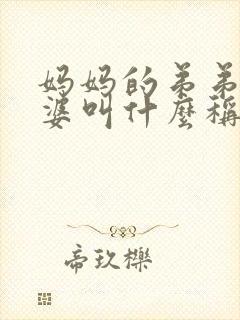 妈妈的弟弟
婆叫什麼稱
帝玖櫟